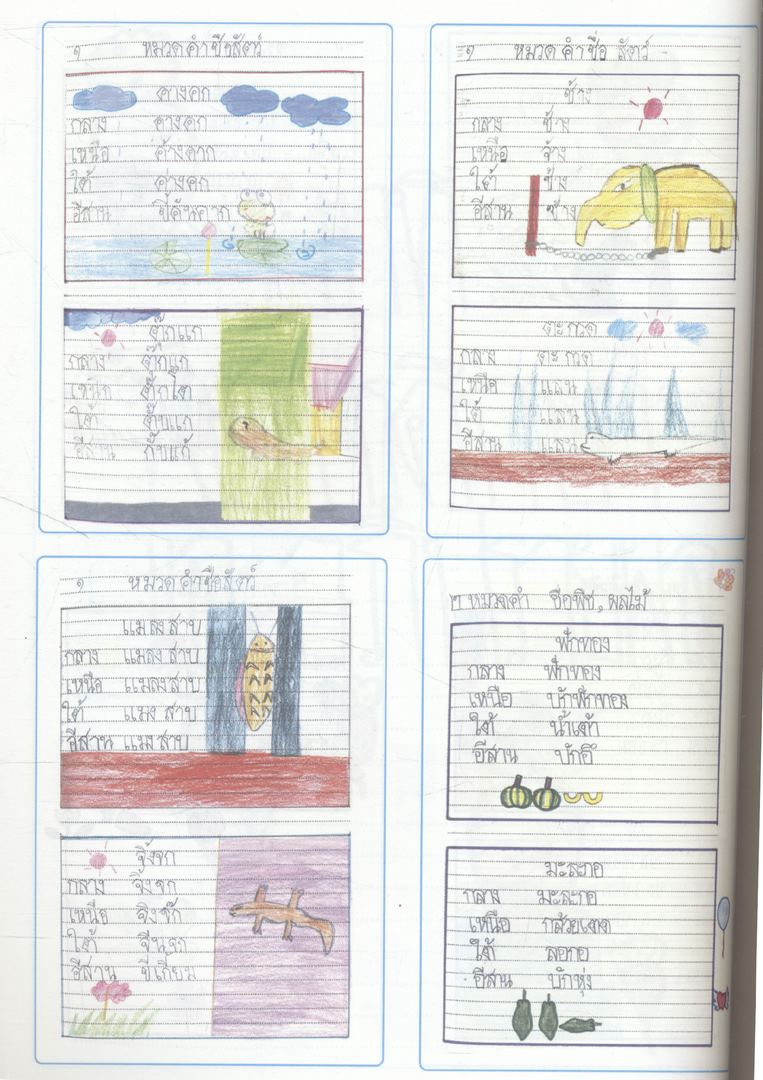 ๑ หมวดคำชื่อสัตว์
คางคก
กลาง คางคก
เหนือ ค้างคาก
ใต้ ค่างคก
อีสาน ขี้คันคาก
ตุ๊กแก
กลาง ตุ๊กแก
เหนือ ตุ๊กโต
ใต้ ตุ๊กแก
อีสาน กั๊บแก้
๑ หมวดคำชื่อ สัตว์
ช้าง
กลาง ช้าง
เหนือ จ้าง
ใต้ ช้าง
อีสาน ช้าง
ตะกวด
กลาง ตะกวด
เหนือ แลน
ใต้ แลน
อีสาน แลน
๑ หมวดคำชื่อสัตว์
แมลงสาบ
กลาง แมลงสาบ
เหนือ แมลงสาบ
ใต้ แมงสาบ
อีสาน แมงสาบ
จิ้งจก
กลาง จิ้งจก
เหนือ จิ้งจัก
ใต้ จีนจก
อีสาน ขี้เกี้ยม
๒ หมวดคำ ชื่อพืช, ผลไม้
ฟักทอง
กลาง ฟักทอง
เหนือ บักฟักทอง
ใต้ น้ำเต้า
อีสาน บักอึ
มะละกอ
กลาง มะละกอ
เหนือ กล้วยเตด
ใต้ ลอกอ
อีสาน บักหุ่ง